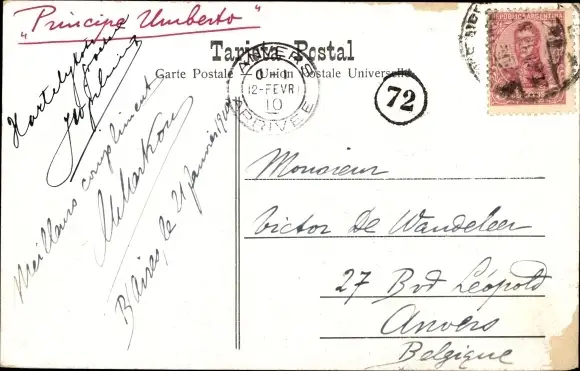 "Principe Umberto"
Tarjeta Postal
Carte Postale Union Postale Universelle
ANVERS
12-FEVR
10
ARRIVÉE
72
REPUBLICA ARGENTINA
Meilleurs compliment
B/Aires, le 21 Janvier 1910
Monsieur
Victor De Wandeleer
27 Bvd Léopold
Anvers
Belgique